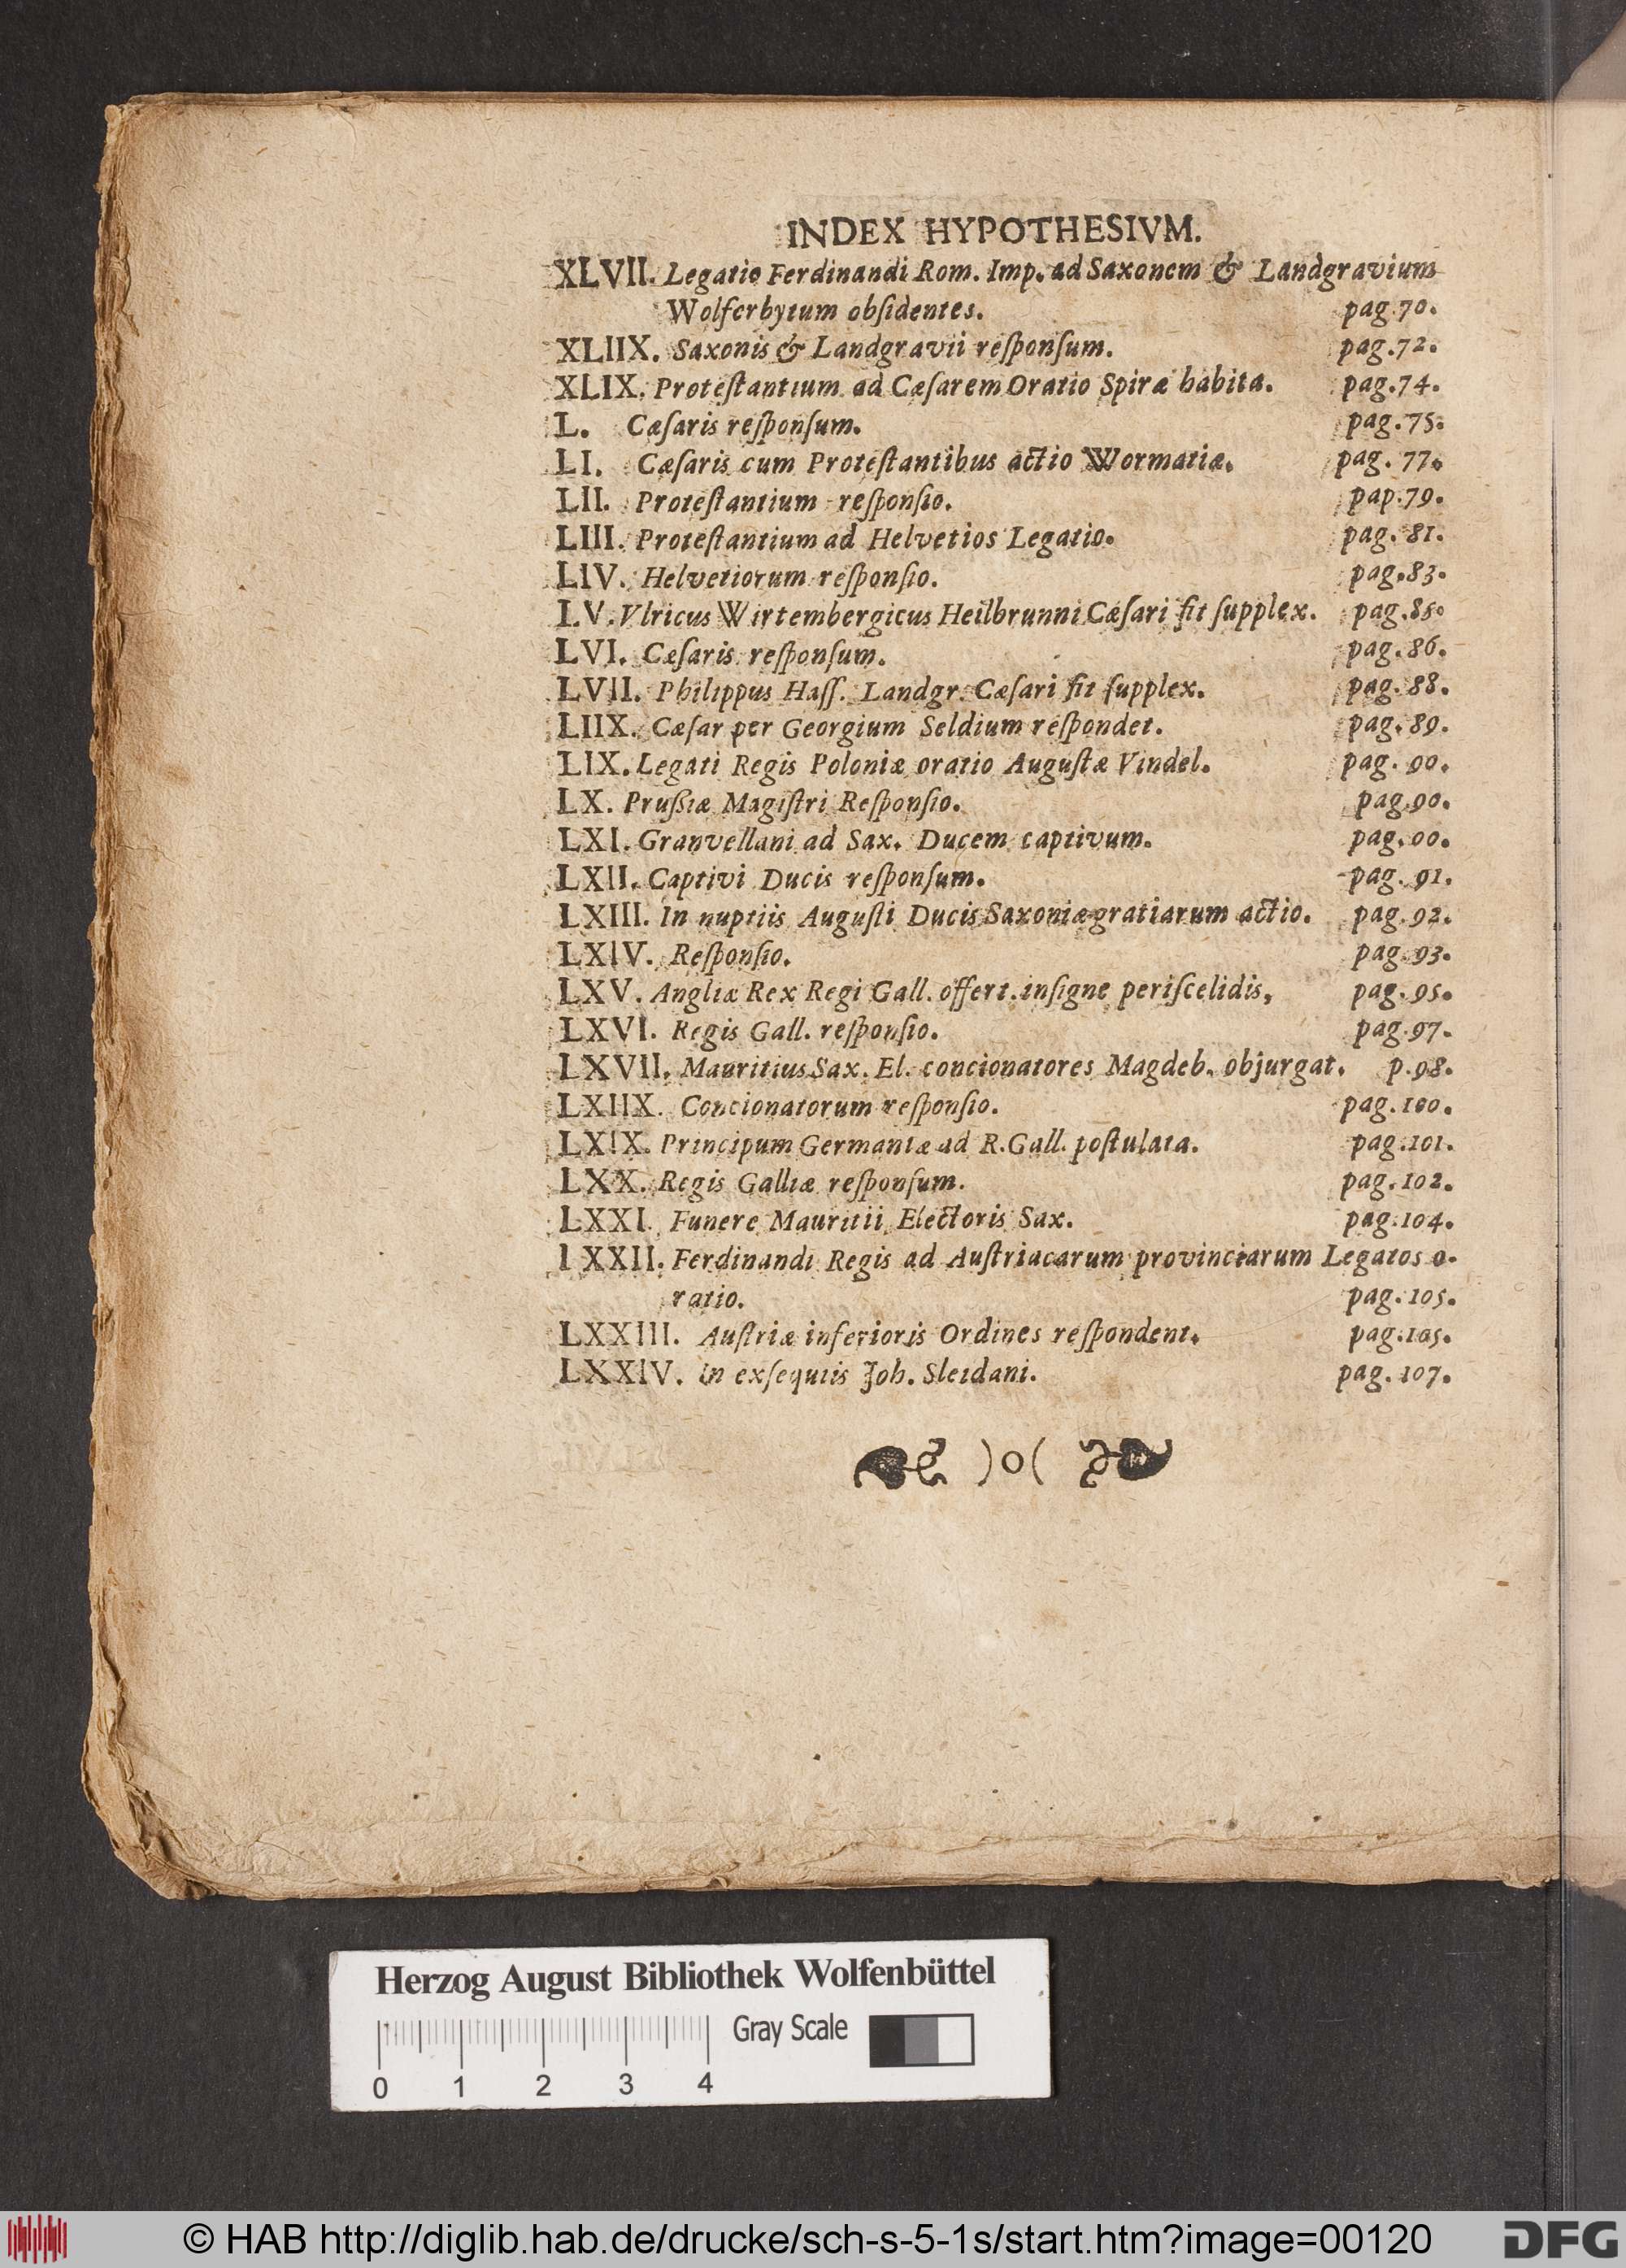 INDEX HYPOTHESIVM.
XLVII. Legatio Ferdinandi Rom. Imp. ad Saxonem & Landgravium
Wolferbytum obſidentes. pag.70.
XLIIX. Saxonis & Landgravii reſponſum. pag.72.
XLIX. Proteſtantium ad Cæſarem Oratio Spiræ habita. pag.74.
L. Cæſaris reſponſum. pag.75.
LI. Cæſaris cum Proteſtantibus actio Wormatiæ. pag. 77.
LII. Proteſtantium reſponſio. pap.79.
LIII. Proteſtantium ad Helvetios Legatio. pag. 81.
LIV. Helvetiorum reſponſio. pag.83.
LV. Vlricus Wirtembergicus Heilbrunni Cæſari fit ſupplex. pag.85.
LVI. Cæſaris reſponſum. pag.86.
LVII. Philippus Haſſ. Landgr. Cæſari fit ſupplex. pag. 88.
LIIX. Cæſar per Georgium Seldium reſpondet. pag. 89.
LIX. Legati Regis Poloniæ oratio Auguſtæ Vindel. pag. 90.
LX. Prußiæ Magiſtri Reſponſio. pag.90.
LXI. Granvellani ad Sax. Ducem captivum. pag.90.
LXII. Captivi Ducis reſponſum. pag. 91.
LXIII. In nuptiis Auguſti Ducis Saxoniæ gratiarum actio. pag.92.
LXIV. Reſponſio. pag.93.
LXV. Angliæ Rex Regi Gall. offert.inſigne periſcelidis, pag.95.
LXVI. Regis Gall. reſponſio. pag.97.
LXVII. Mauritius Sax. El. concionatores Magdeb. objurgat. p.98.
LXIIX. Concionatorum reſponſio. pag.100.
LXIX. Principum Germaniæ ad R.Gall. poſtulata. pag.101.
LXX. Regis Galliæ reſponſum. pag.102.
LXXI. Funere Mauritii Electoris Sax. pag.104.
LXXII. Ferdinandi Regis ad Auſtriacarum provinciarum Legatos o-
ratio. pag.105.
LXXIII. Auſtriæ inferioris Ordines reſpondent. pag.105.
LXXIV. In exſequiis Joh. Sleidani. pag. 107.
)o(
Herzog August Bibliothek Wolfenbüttel
Gray Scale
0 1 2 3 4
© HAB http://diglib.hab.de/drucke/sch-s-5-1s/start.htm?image=00120 DFG